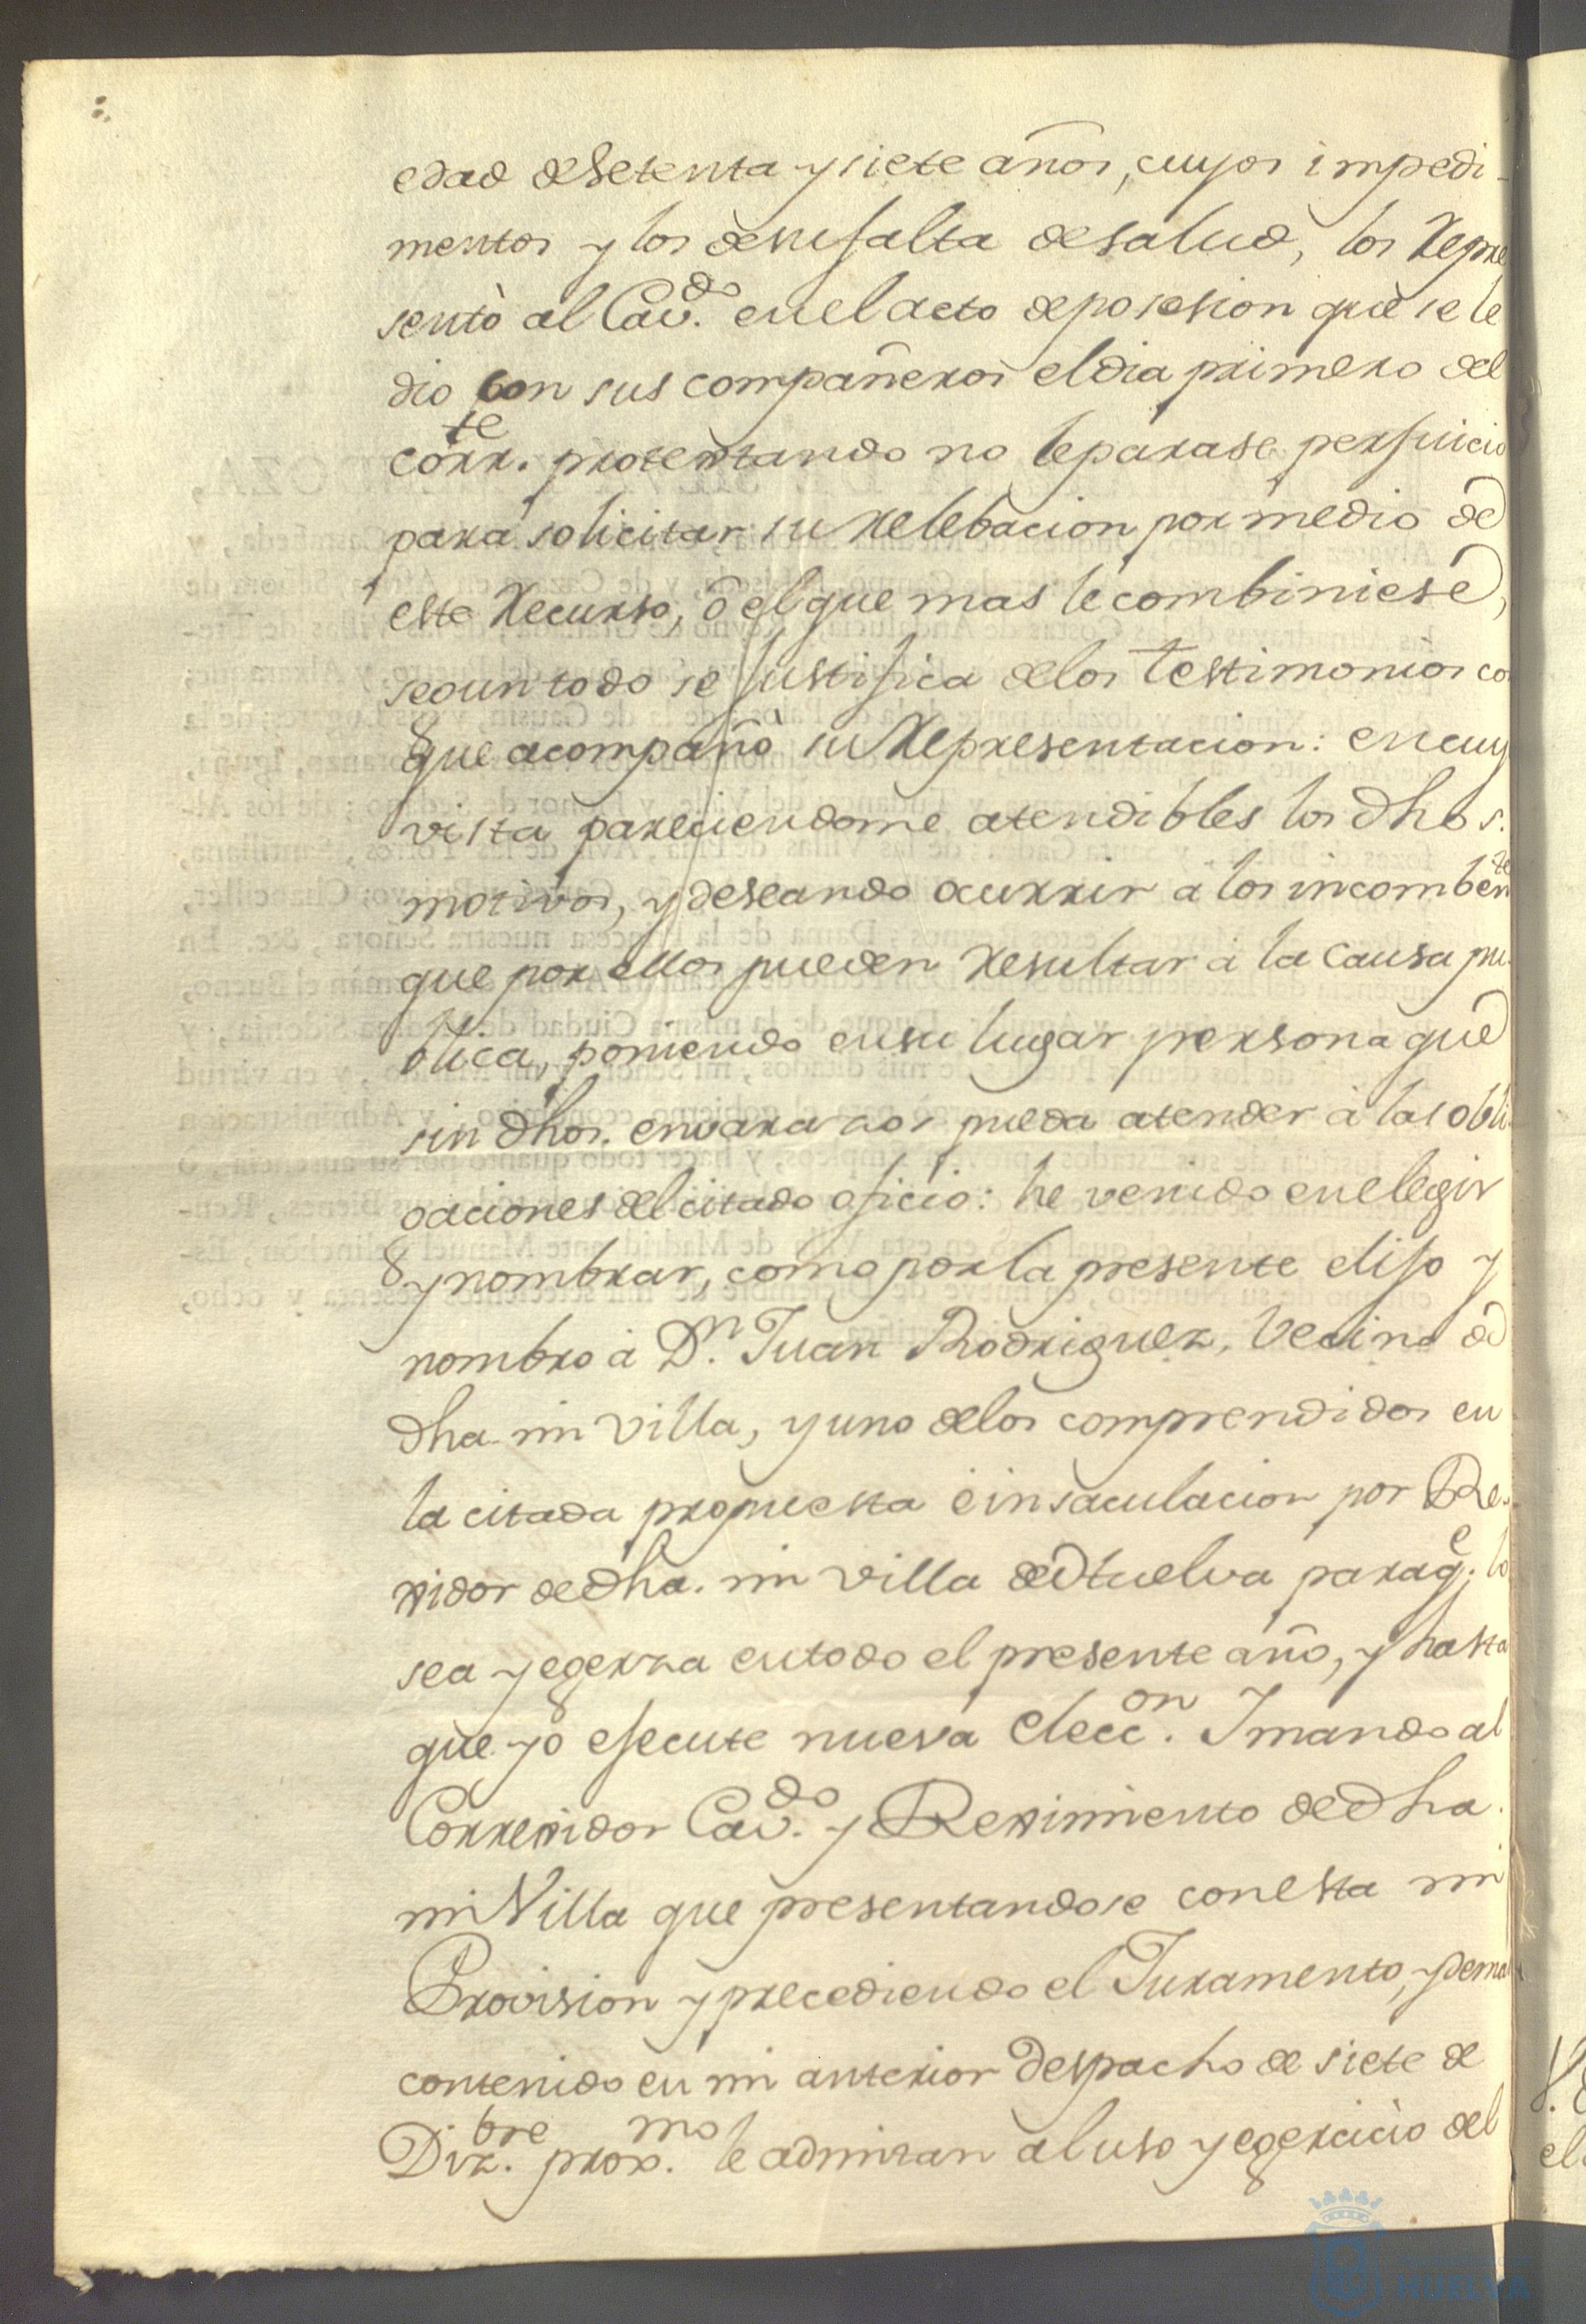 edad de setenta y siete años, cuyos impedi-
mentos y los de su falta de salud, los Repre
sentò al Cav.do en el acto de posesion que se le
dio con sus compañeros el dia primero del
corr.te protextando no le parase perjuicio
para solicitar su relebacion por medio de
este Recurso, ò el que mas le combiniese,
segun todo se justifica de los testimonios co
que acompañò su Representacion: en cuy
vista pareciendome atendibles los dhos.
motivos, y deseando ocurrir a los incombente
que por ellos pueden resultar à la causa pu
blica, poniendo en su lugar persona que
sin dhos. envarazos pueda atender à las obli
gaciones del citado oficio: he venido en elegir
y nombrar, como por la presente elijo y
nombro à D.n Juan Rodriguez, Vecino de
dha mi Villa, y uno de los comprendidos en
la citada propuesta è insaculacion por Re-
gidor de dha. mi villa de Huelva para q.e lo
sea y egerza en todo el presente año, y hasta
que yo ejecute nueva elecc.on. Y mando al
Corregidor Cav.do y Regimiento de dha.
mi Villa que presentandose con esta mi
Provision y precediendo el Juramento, y demas
contenido en mi anterior Despacho de siete de
Diz.bre prox.mo le admitan al uso y egercicio del
HUELVA